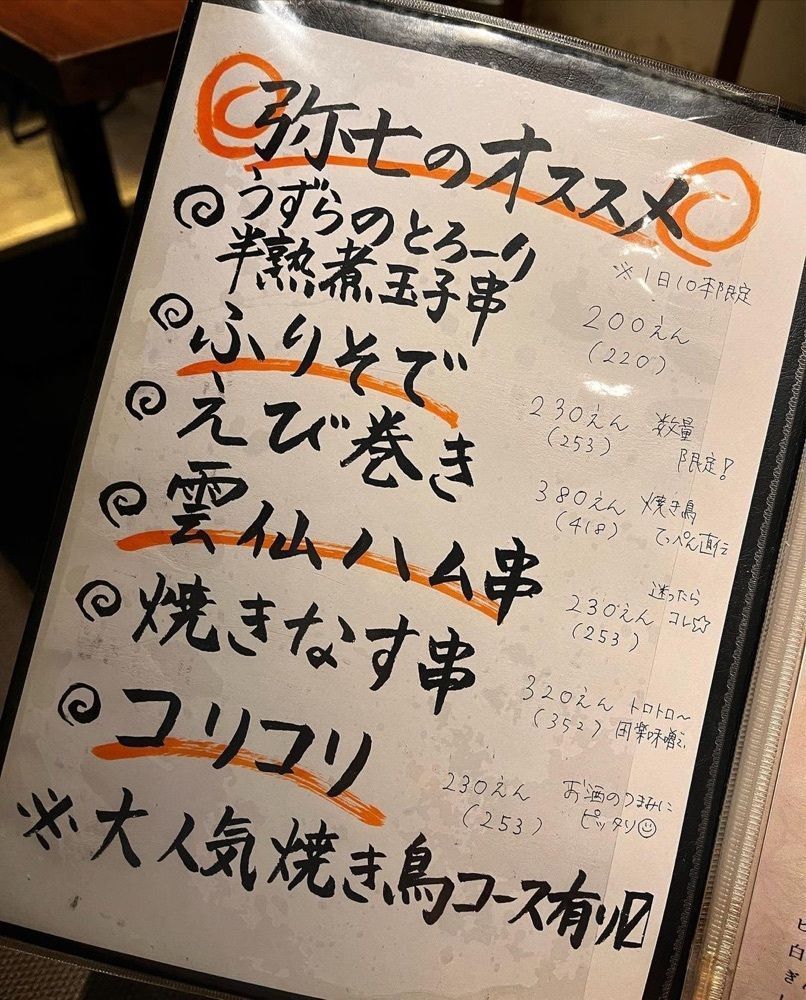 弥七のオススメ
うずらのとろーり
半熟煮玉子串
※1日10本限定
200えん
(220)
ふりそで
230えん 数量
(253) 限定!
えび巻き
380えん 焼き鳥
(418) てっぺん直伝
雲仙ハム串
迷ったら
230えん コレ☆
(253)
焼きなす串
320えん トロトロ〜
(352) 田楽味噌で
コリコリ
230えん お酒のつまみに
(253) ピッタリ☺
※大人気焼き鳥コース有り〼